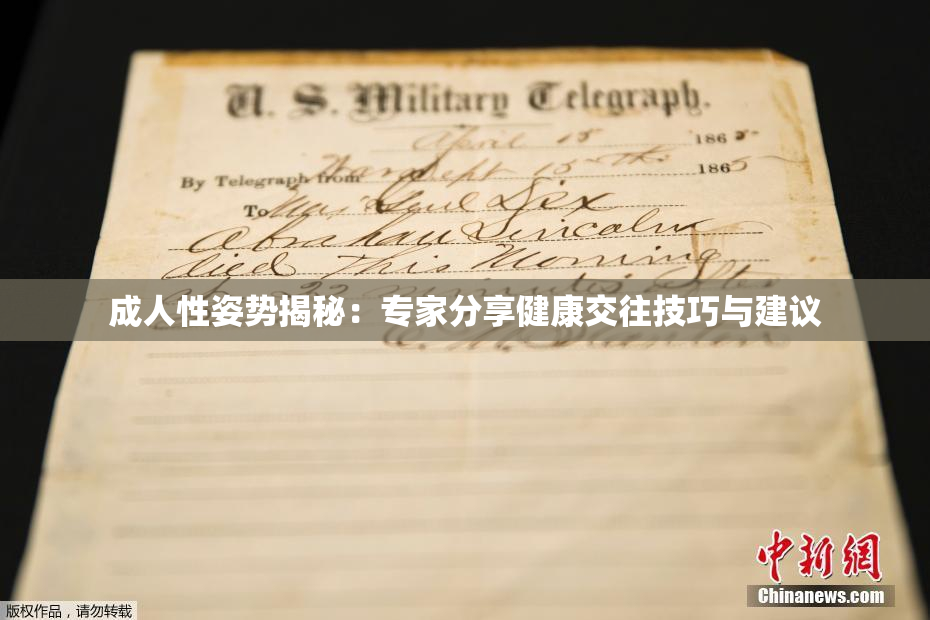 U. S. Military Telegraph.
April 15 1865-
By Telegraph from War Dept 15th 1865
To Maj Genl Dix
Abraham Lincoln
died This Morning
22 minutes after
成人性姿势揭秘：专家分享健康交往技巧与建议
E. M. Stanton
中新網
Chinanews.com
版权作品，请勿转载